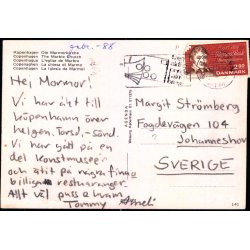 febr. -88
Kopenhagen Die Marmorkirche
Copenhagen The Marble Church
Copenhague L'église de Marbre
Copenaghen La chiesa di Marmo
Copenhague La iglesia de Marmol
DANMARK
Hej Mormor!
Vi har åkt till
Köpenhamn över
helgen. Torsd.-Sönd.
Vi har gått på en
del konstmuseer
och ätit på några finna
billiga restauranger.
Allt väl puss o kram
Tommy
Margit Strömberg
Fogdevägen 104
Johanneshov
SVERIGE